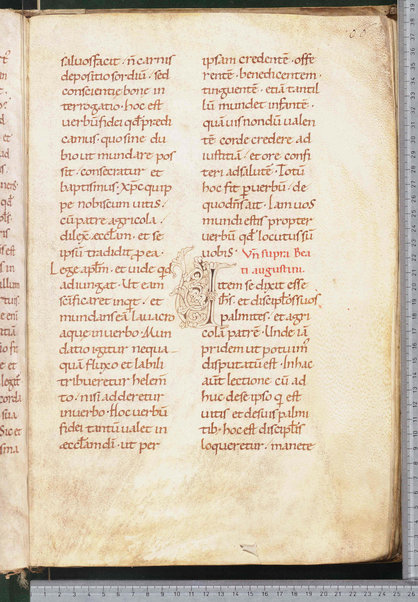 saluos facit · n̄ carnis
depositio sordiū · sed
conscientię bonę in
terrogatio · hoc est
uerbū fidei qd̄ prędi
camus · quo sine du
bio ut mundare pos
sit · consecratur et
baptismus · xp̄c quip
pe nobiscum uitis ·
cū patre agricola ·
dilex̄ ęccl̄am · et se
ipsū tradidit p̄ ea ·
Lege apl̄m · et uide qd̄
adiungat · Ut eam
sc̄ificaret inqt · et
mundans eā lauacro
aquę in uerbo · Mun
datio igitur nequa
quā fluxo et labili
tribueretur helem̄
to · nisi adderetur
in uerbo · Hoc uerbū
fidei tantū ualet in
ęccl̄a dī · ut per
ipsam credentē · offe
rentē · benedicentem ·
tinguentē · etiā tantil
lū mundet infantē ·
quāuis nondū ualen
tē corde credere ad
iustitiā · et ore confi
teri ad salutē · Totū
hoc fit p uerbū · de
quo dn̄s ait · Iam uos
mundi estis propter
uerbū qd̄ locutus sū
uobis · Vn̄ supra Bea
ti augustini ·
Item se dixit esse
ih̄s · et discipl̄os suos
palmites · et agri
colā patrē · Unde iā
pridem ut potuim̄
disputatū est · In hac
aūt lectione cū ad
huc de se ipso q̄ est
uitis et de suis palmi
tib · hoc est discipl̄is
loqueretur · manete